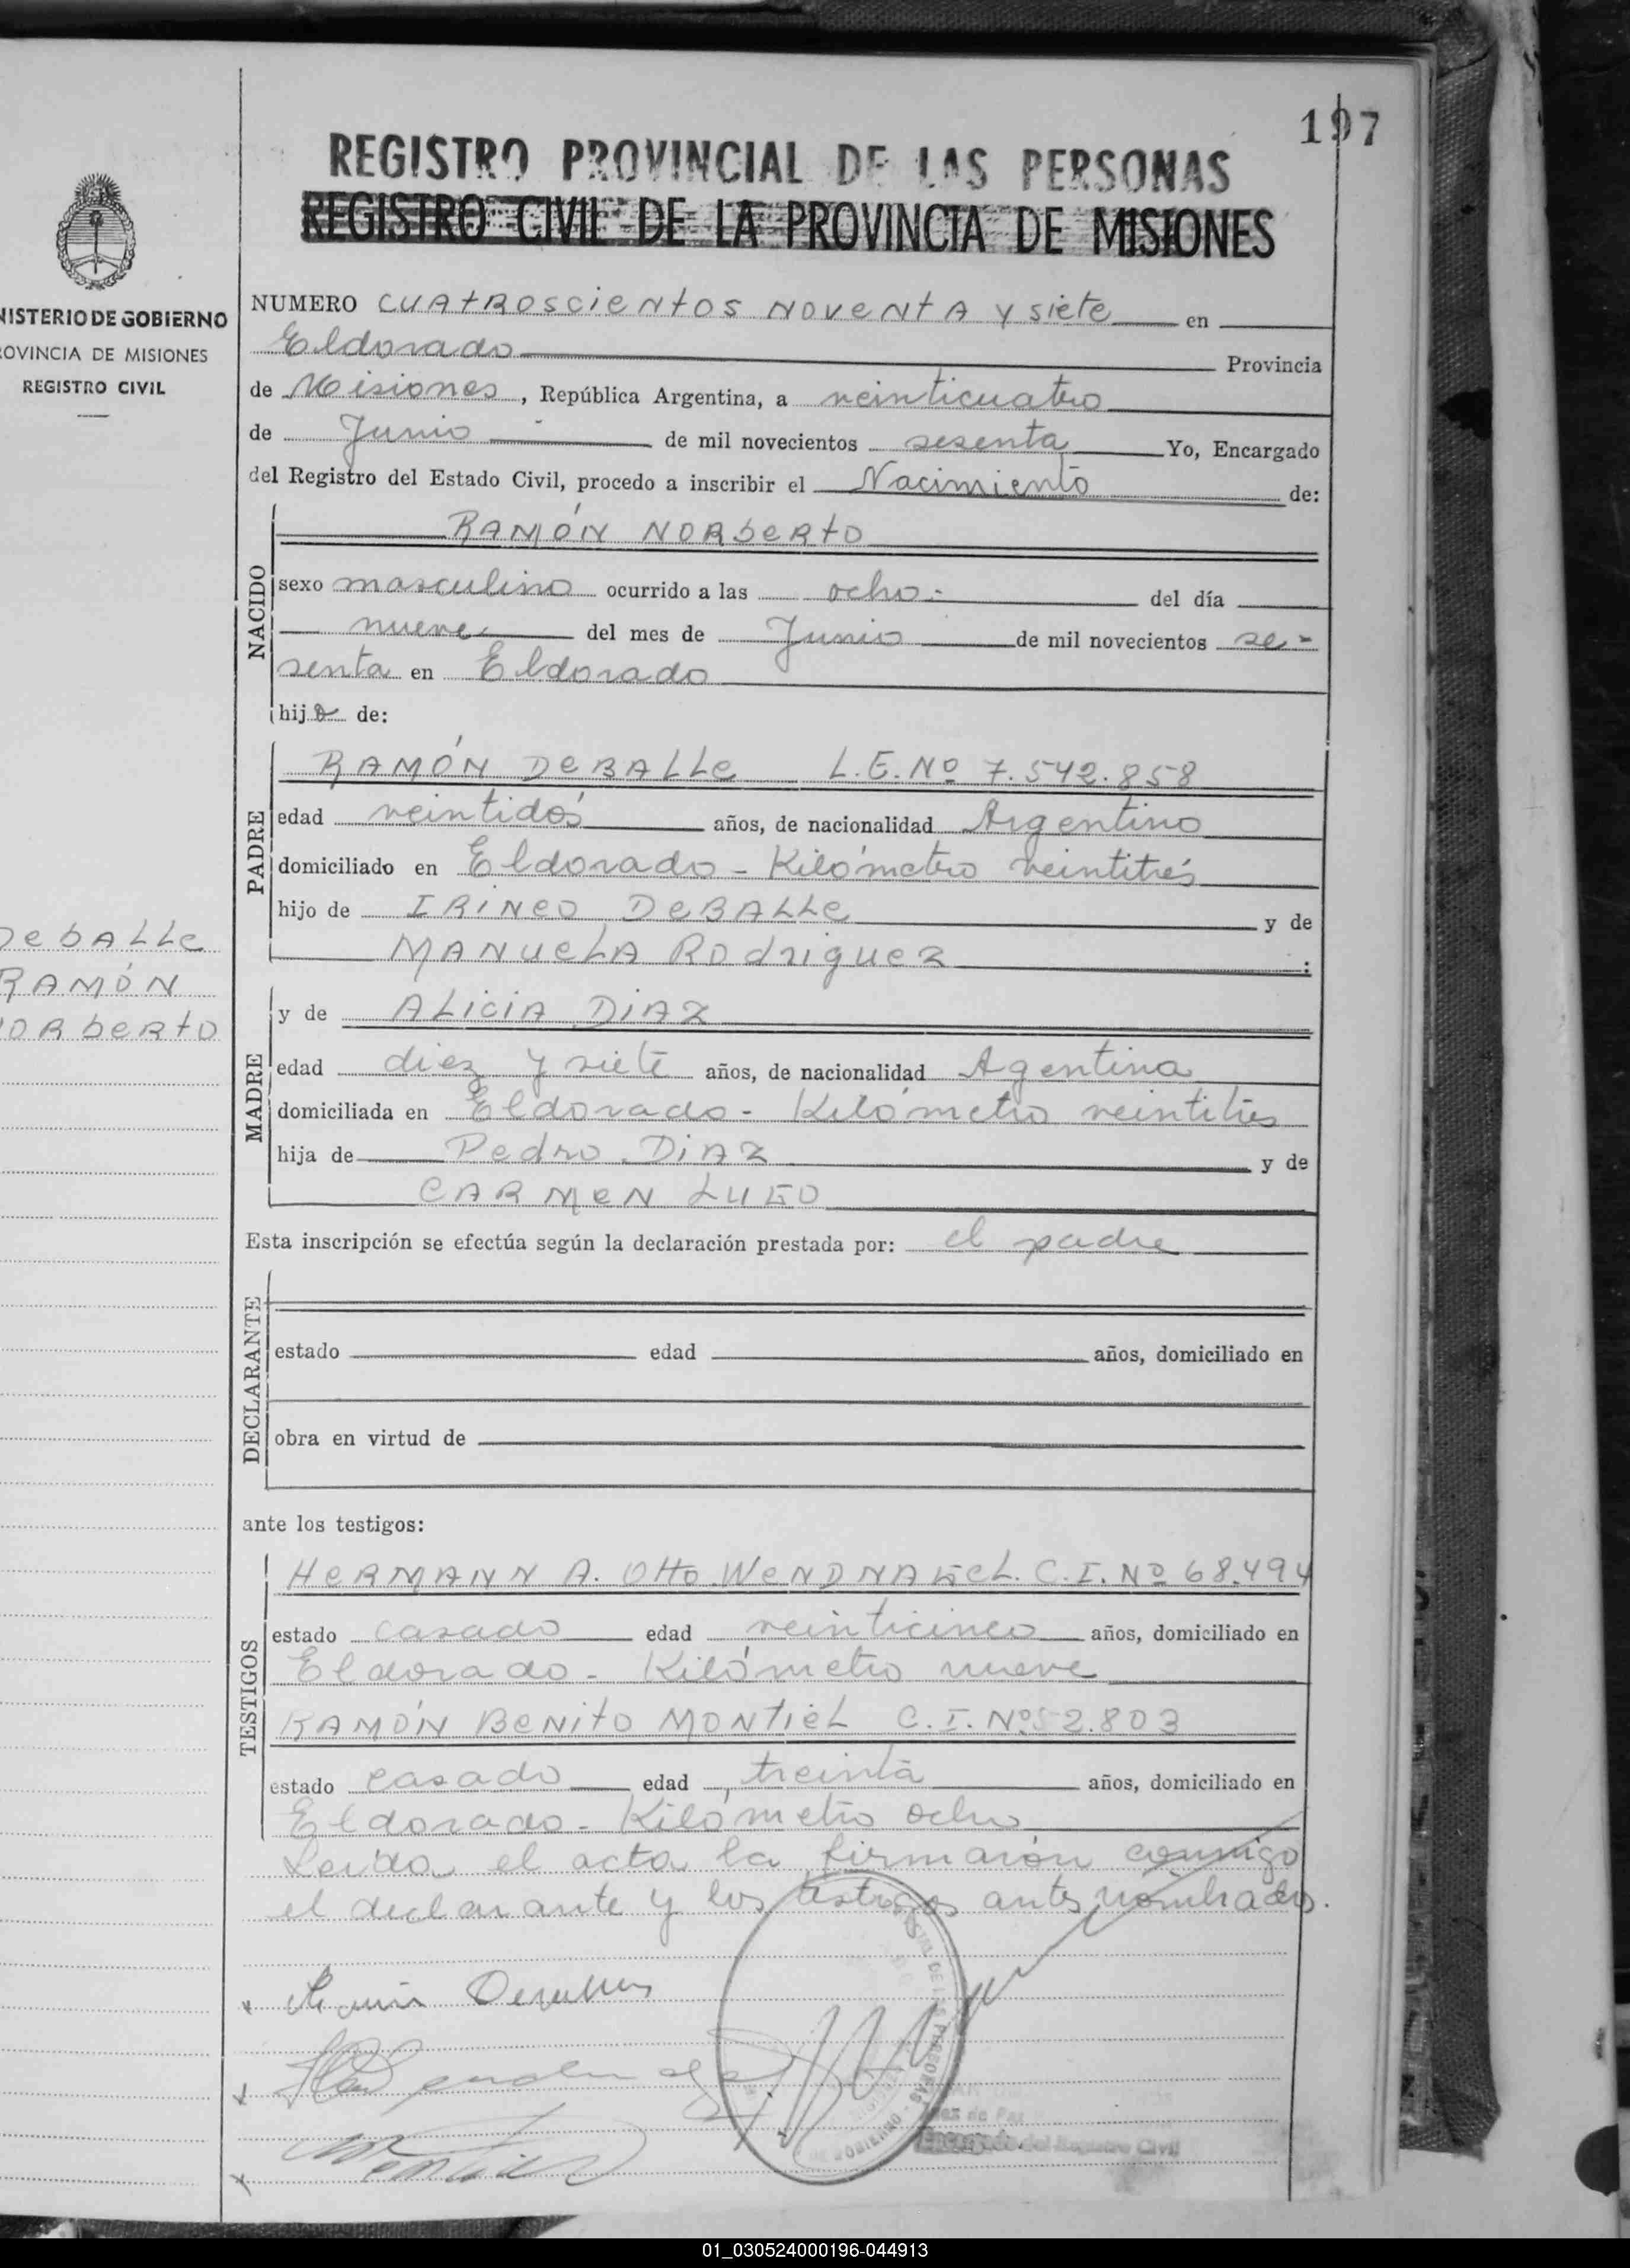 197
REGISTRO PROVINCIAL DE LAS PERSONAS
REGISTRO CIVIL DE LA PROVINCIA DE MISIONES
NISTERIO DE GOBIERNO
OVINCIA DE MISIONES
REGISTRO CIVIL
NUMERO CUATROSCIENTOS NOVENTA Y SIETE en
Eldorado Provincia
de Misiones, República Argentina, a veinticuatro
de Junio de mil novecientos sesenta Yo, Encargado
del Registro del Estado Civil, procedo a inscribir el Nacimiento de:
NACIDO
RAMÓN NORBERTO
sexo masculino ocurrido a las ocho.- del día
nueve del mes de Junio de mil novecientos se-
senta en Eldorado
hijo de:
PADRE
RAMÓN DEBALLE L.E. Nº 7.542.858
edad veintidós años, de nacionalidad Argentino
domiciliado en Eldorado - Kilómetro veintitrés
hijo de IRINEO DEBALLE y de
MANUELA RODRIGUEZ :
DEBALLE
RAMÓN
NORBERTO
MADRE
y de ALICIA DIAZ
edad diez y siete años, de nacionalidad Agentina
domiciliada en Eldorado - Kilómetro veintitrés
hija de Pedro DIAZ y de
CARMEN LUGO
Esta inscripción se efectúa según la declaración prestada por: el padre
DECLARANTE
estado edad años, domiciliado en
obra en virtud de
ante los testigos:
TESTIGOS
HERMANN A. Otto WENDNAGEL. C.I. Nº 68.494
estado casado edad veinticinco años, domiciliado en
Eldorado - Kilómetro nueve
RAMÓN BENITO MONTIEL C.I. Nº 52.803
estado casado edad treinta años, domiciliado en
Eldorado - Kilómetro ocho
Leída el acta la firmaron conmigo
el declarante y los testigos antes nombrados.
Encargado del Registro Civil
01_030524000196-044913